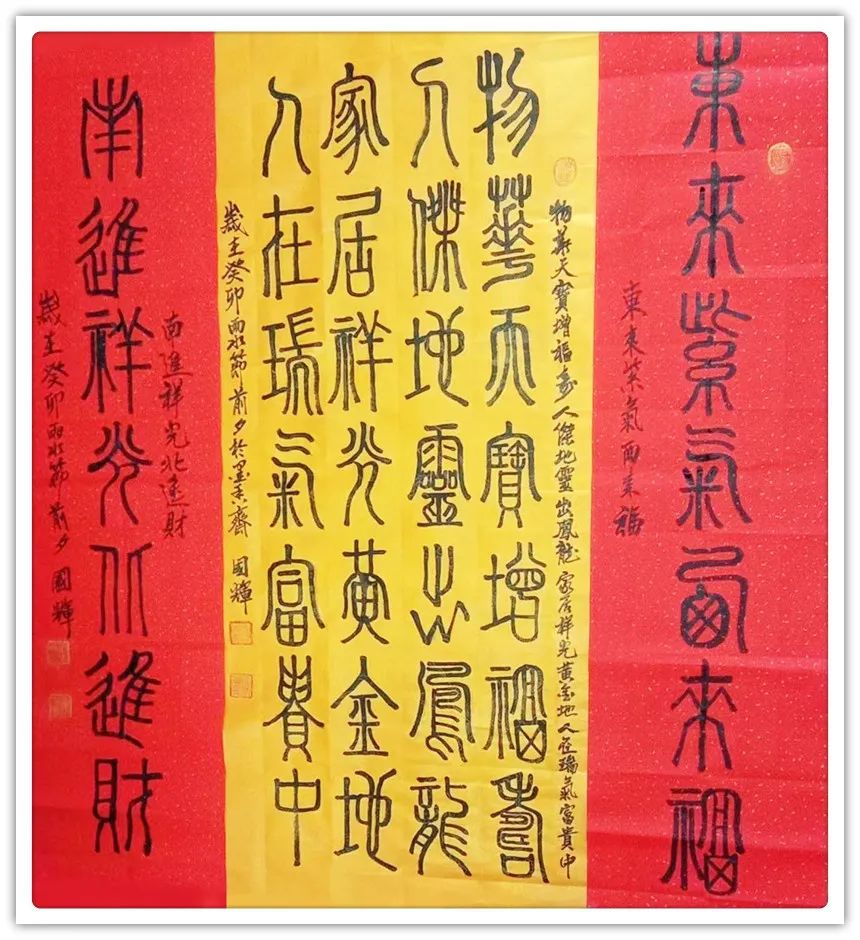 東來紫氣西來福
東來紫氣西來福
物華天寶增福壽 人傑地靈出鳳龍 家居祥光黃金地 人在瑞氣富貴中
物華天寶增福壽
人傑地靈出鳳龍
家居祥光黃金地
人在瑞氣富貴中
歲在癸卯雨水節前夕於墨香齋 國輝
南進祥光北進財
南進祥光北進財
歲在癸卯雨水節前夕 國輝